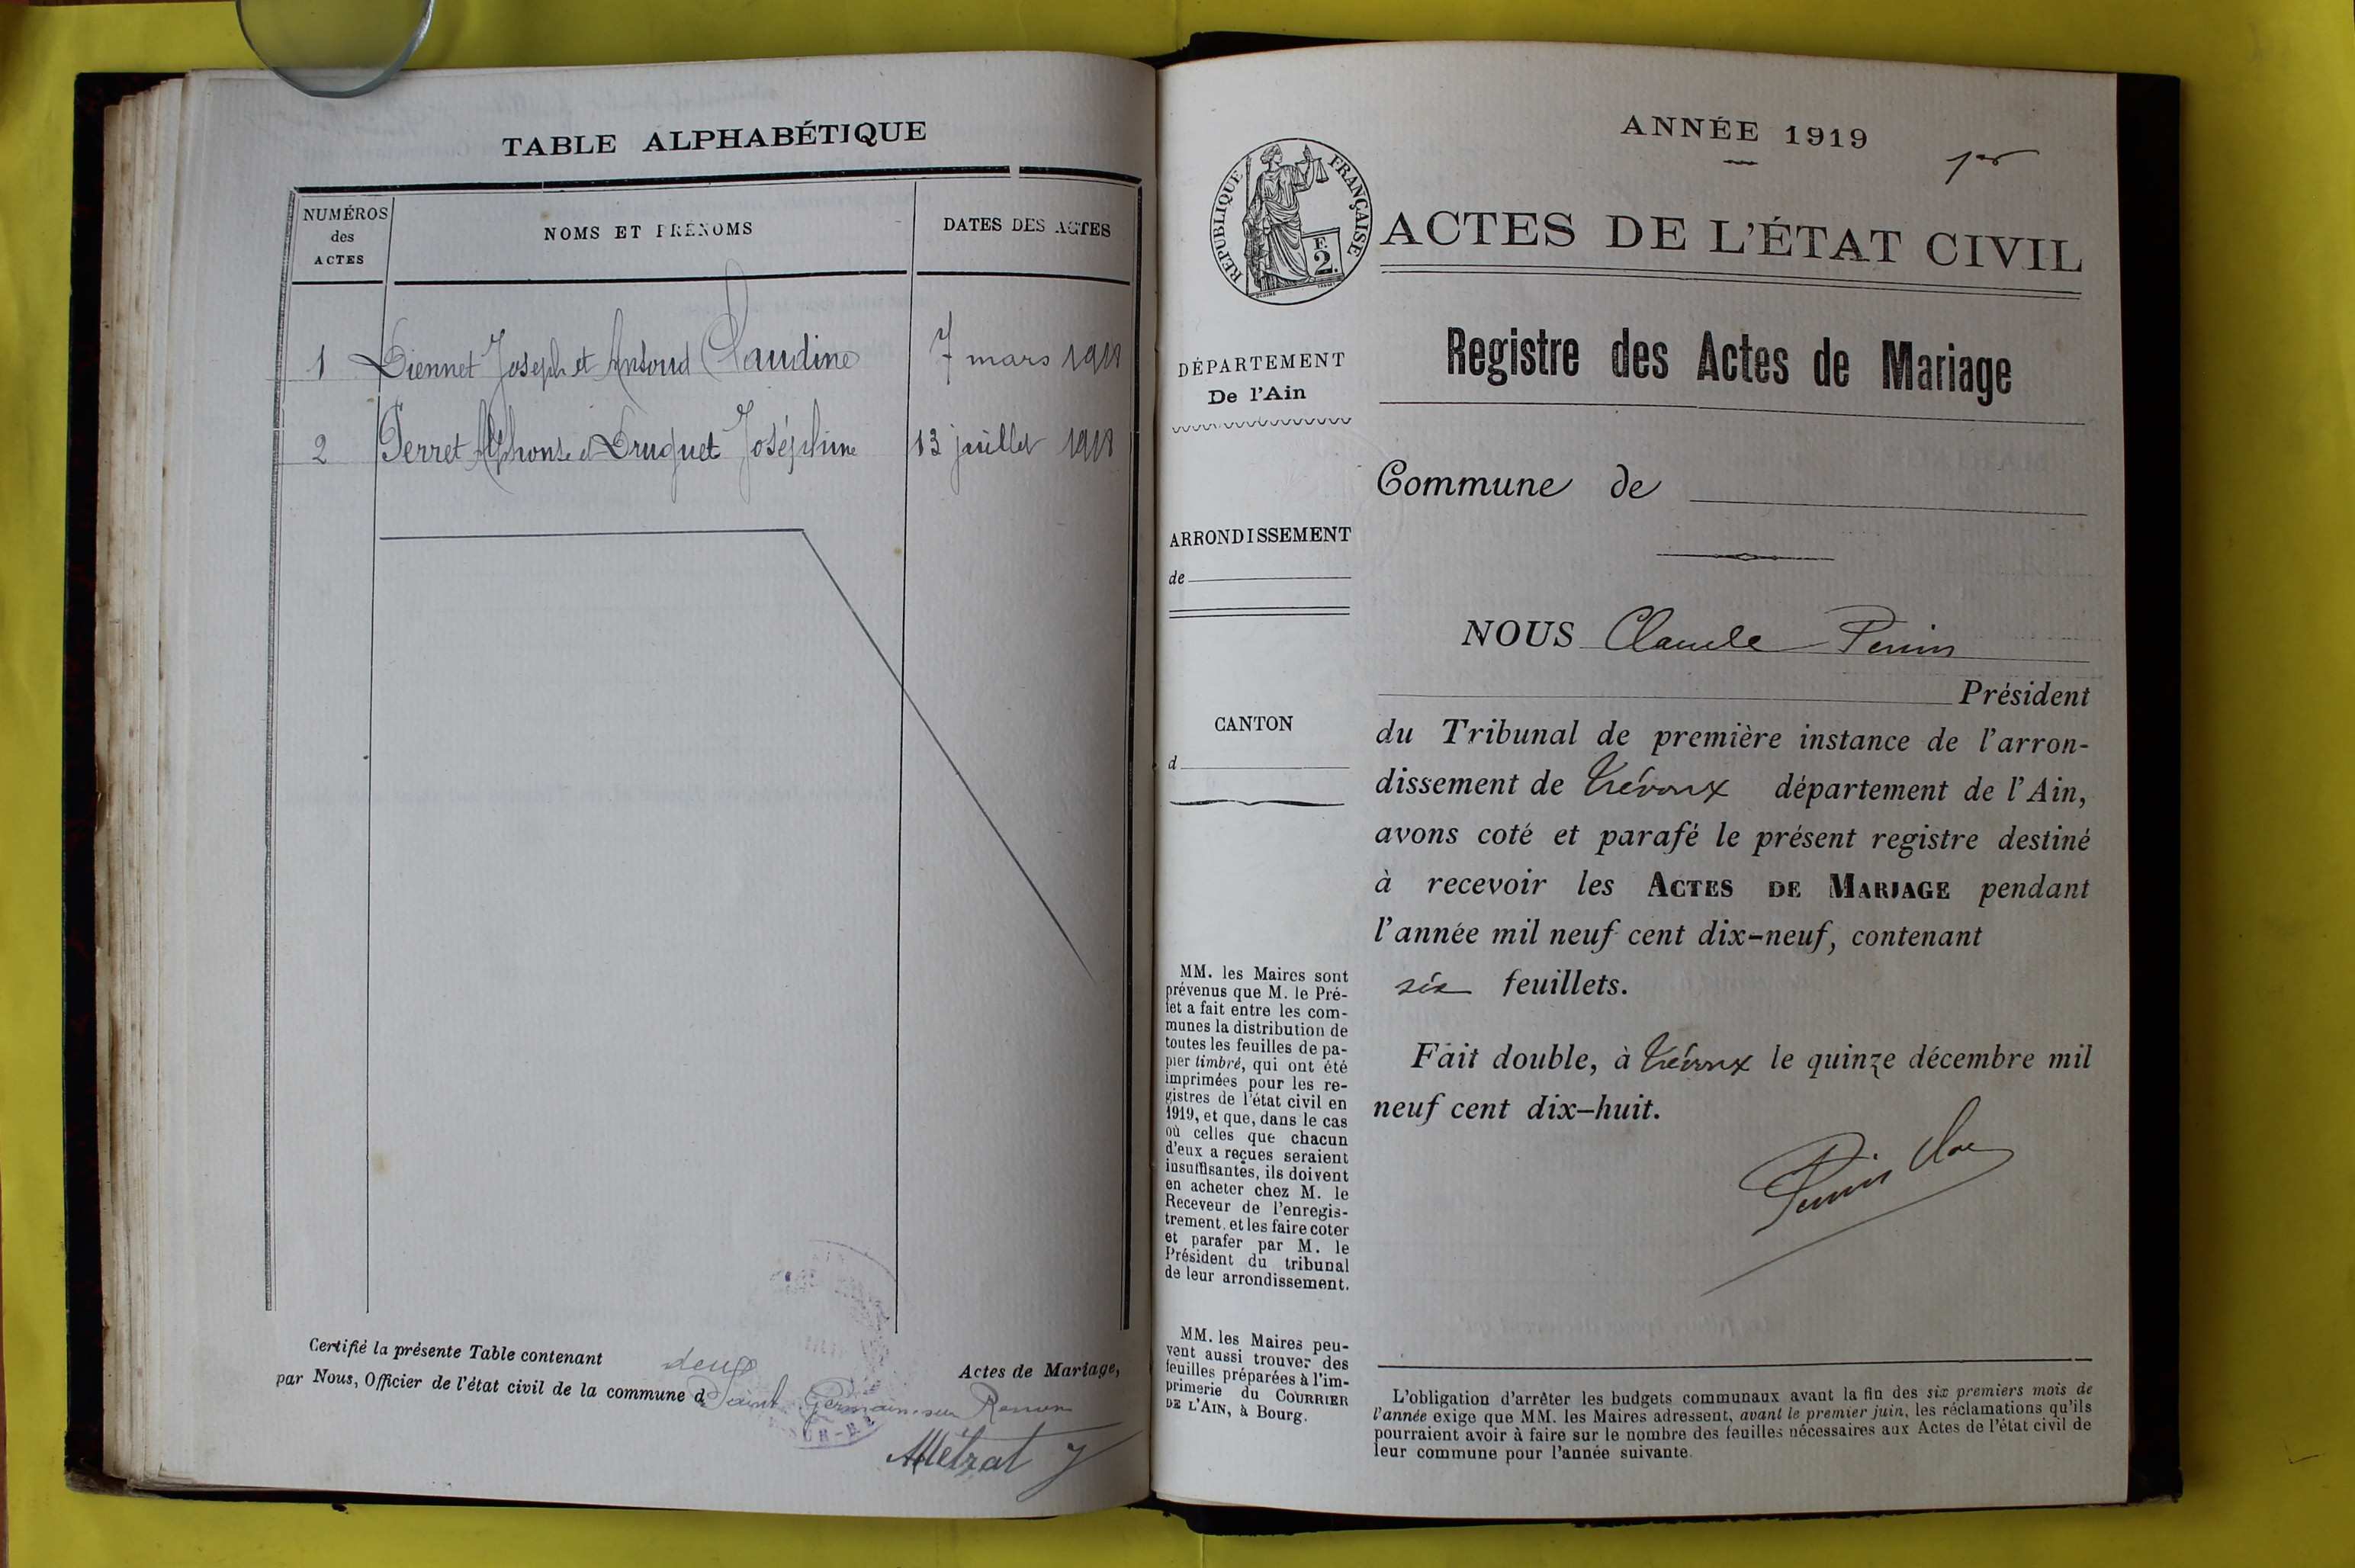 TABLE ALPHABÉTIQUE
NUMÉROS
des
ACTES
NOMS ET PRÉNOMS
DATES DES ACTES
1 Diennet Joseph et Claudine 7 mars 1918
2 Perret Alphonse et Druguet Joséphine 13 juillet 1918
Certifié la présente Table contenant deux Actes de Mariage,
par Nous, Officier de l'état civil de la commune de Saint Germain-sur Renon
Métrat J
ANNÉE 1919
1er
RÉPUBLIQUE FRANÇAISE
F.
2.
ACTES DE L'ÉTAT CIVIL
Registre des Actes de Mariage
DÉPARTEMENT
De l'Ain
ARRONDISSEMENT
de
CANTON
d
MM. les Maires sont
prévenus que M. le Pré-
fet a fait entre les com-
munes la distribution de
toutes les feuilles de pa-
pier timbré, qui ont été
imprimées pour les re-
gistres de l'état civil en
1919, et que, dans le cas
où celles que chacun
d'eux a reçues seraient
insuffisantes, ils doivent
en acheter chez M. le
Receveur de l'enregis-
trement, et les faire coter
et parafer par M. le
Président du tribunal
de leur arrondissement.
MM. les Maires peu-
vent aussi trouver des
feuilles préparées à l'im-
primerie du COURRIER
DE L'AIN, à Bourg.
Commune de
NOUS Claude Perrin
Président
du Tribunal de première instance de l'arron-
dissement de Trévoux département de l'Ain,
avons coté et parafé le présent registre destiné
à recevoir les ACTES DE MARIAGE pendant
l'année mil neuf cent dix-neuf, contenant
six feuillets.
Fait double, à Trévoux le quinze décembre mil
neuf cent dix-huit.
Perrin Cl
L'obligation d'arrêter les budgets communaux avant la fin des six premiers mois de
l'année exige que MM. les Maires adressent, avant le premier juin, les réclamations qu'ils
pourraient avoir à faire sur le nombre des feuilles nécessaires aux Actes de l'état civil de
leur commune pour l'année suivante.